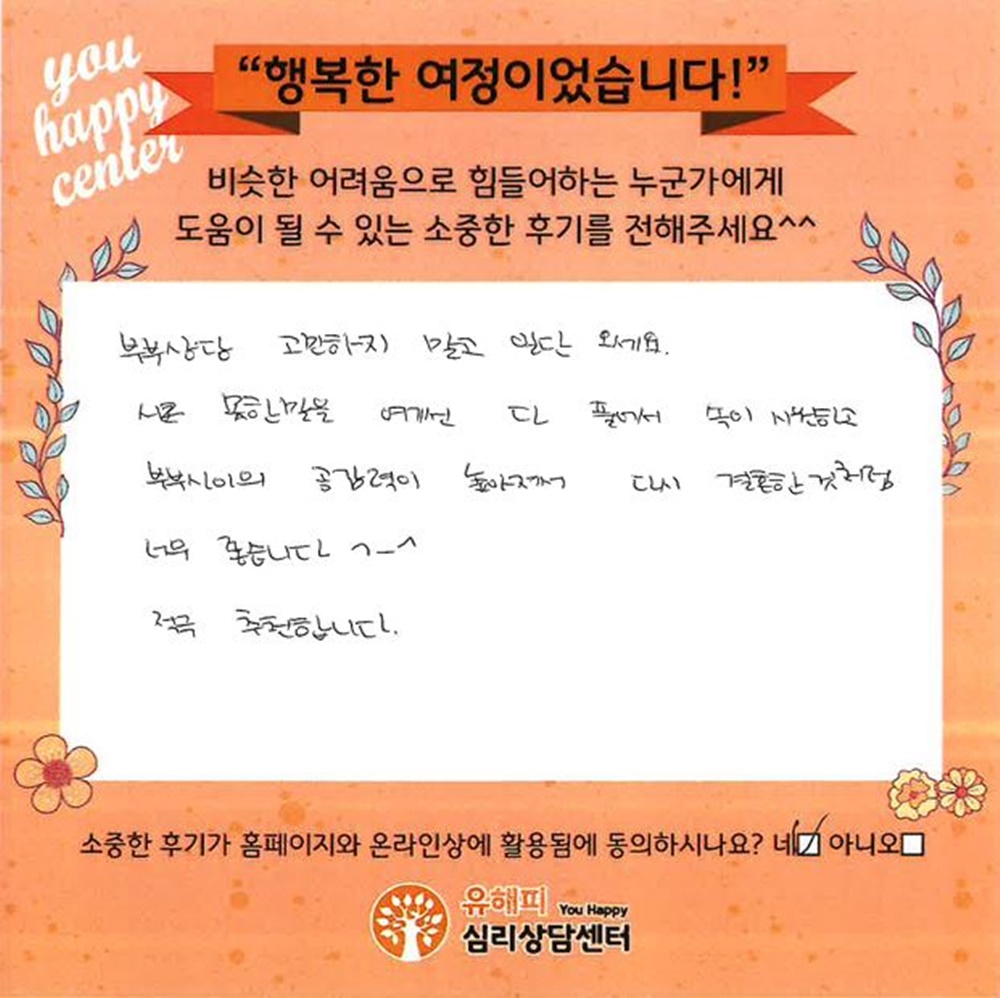 you
happy
center
“행복한 여정이었습니다!”
비슷한 어려움으로 힘들어하는 누군가에게
도움이 될 수 있는 소중한 후기를 전해주세요^^
부부상담 고민하지 말고 일단 오세요.
서로 못한말을 여기선 다 풀어서 속이 시원하고
부부사이의 공감력이 높아져서 다시 결혼한것처럼
너무 좋습니다 ^_^
적극 추천합니다.
소중한 후기가 홈페이지와 온라인상에 활용됨에 동의하시나요? 네☑ 아니오☐
유해피 You Happy
심리상담센터